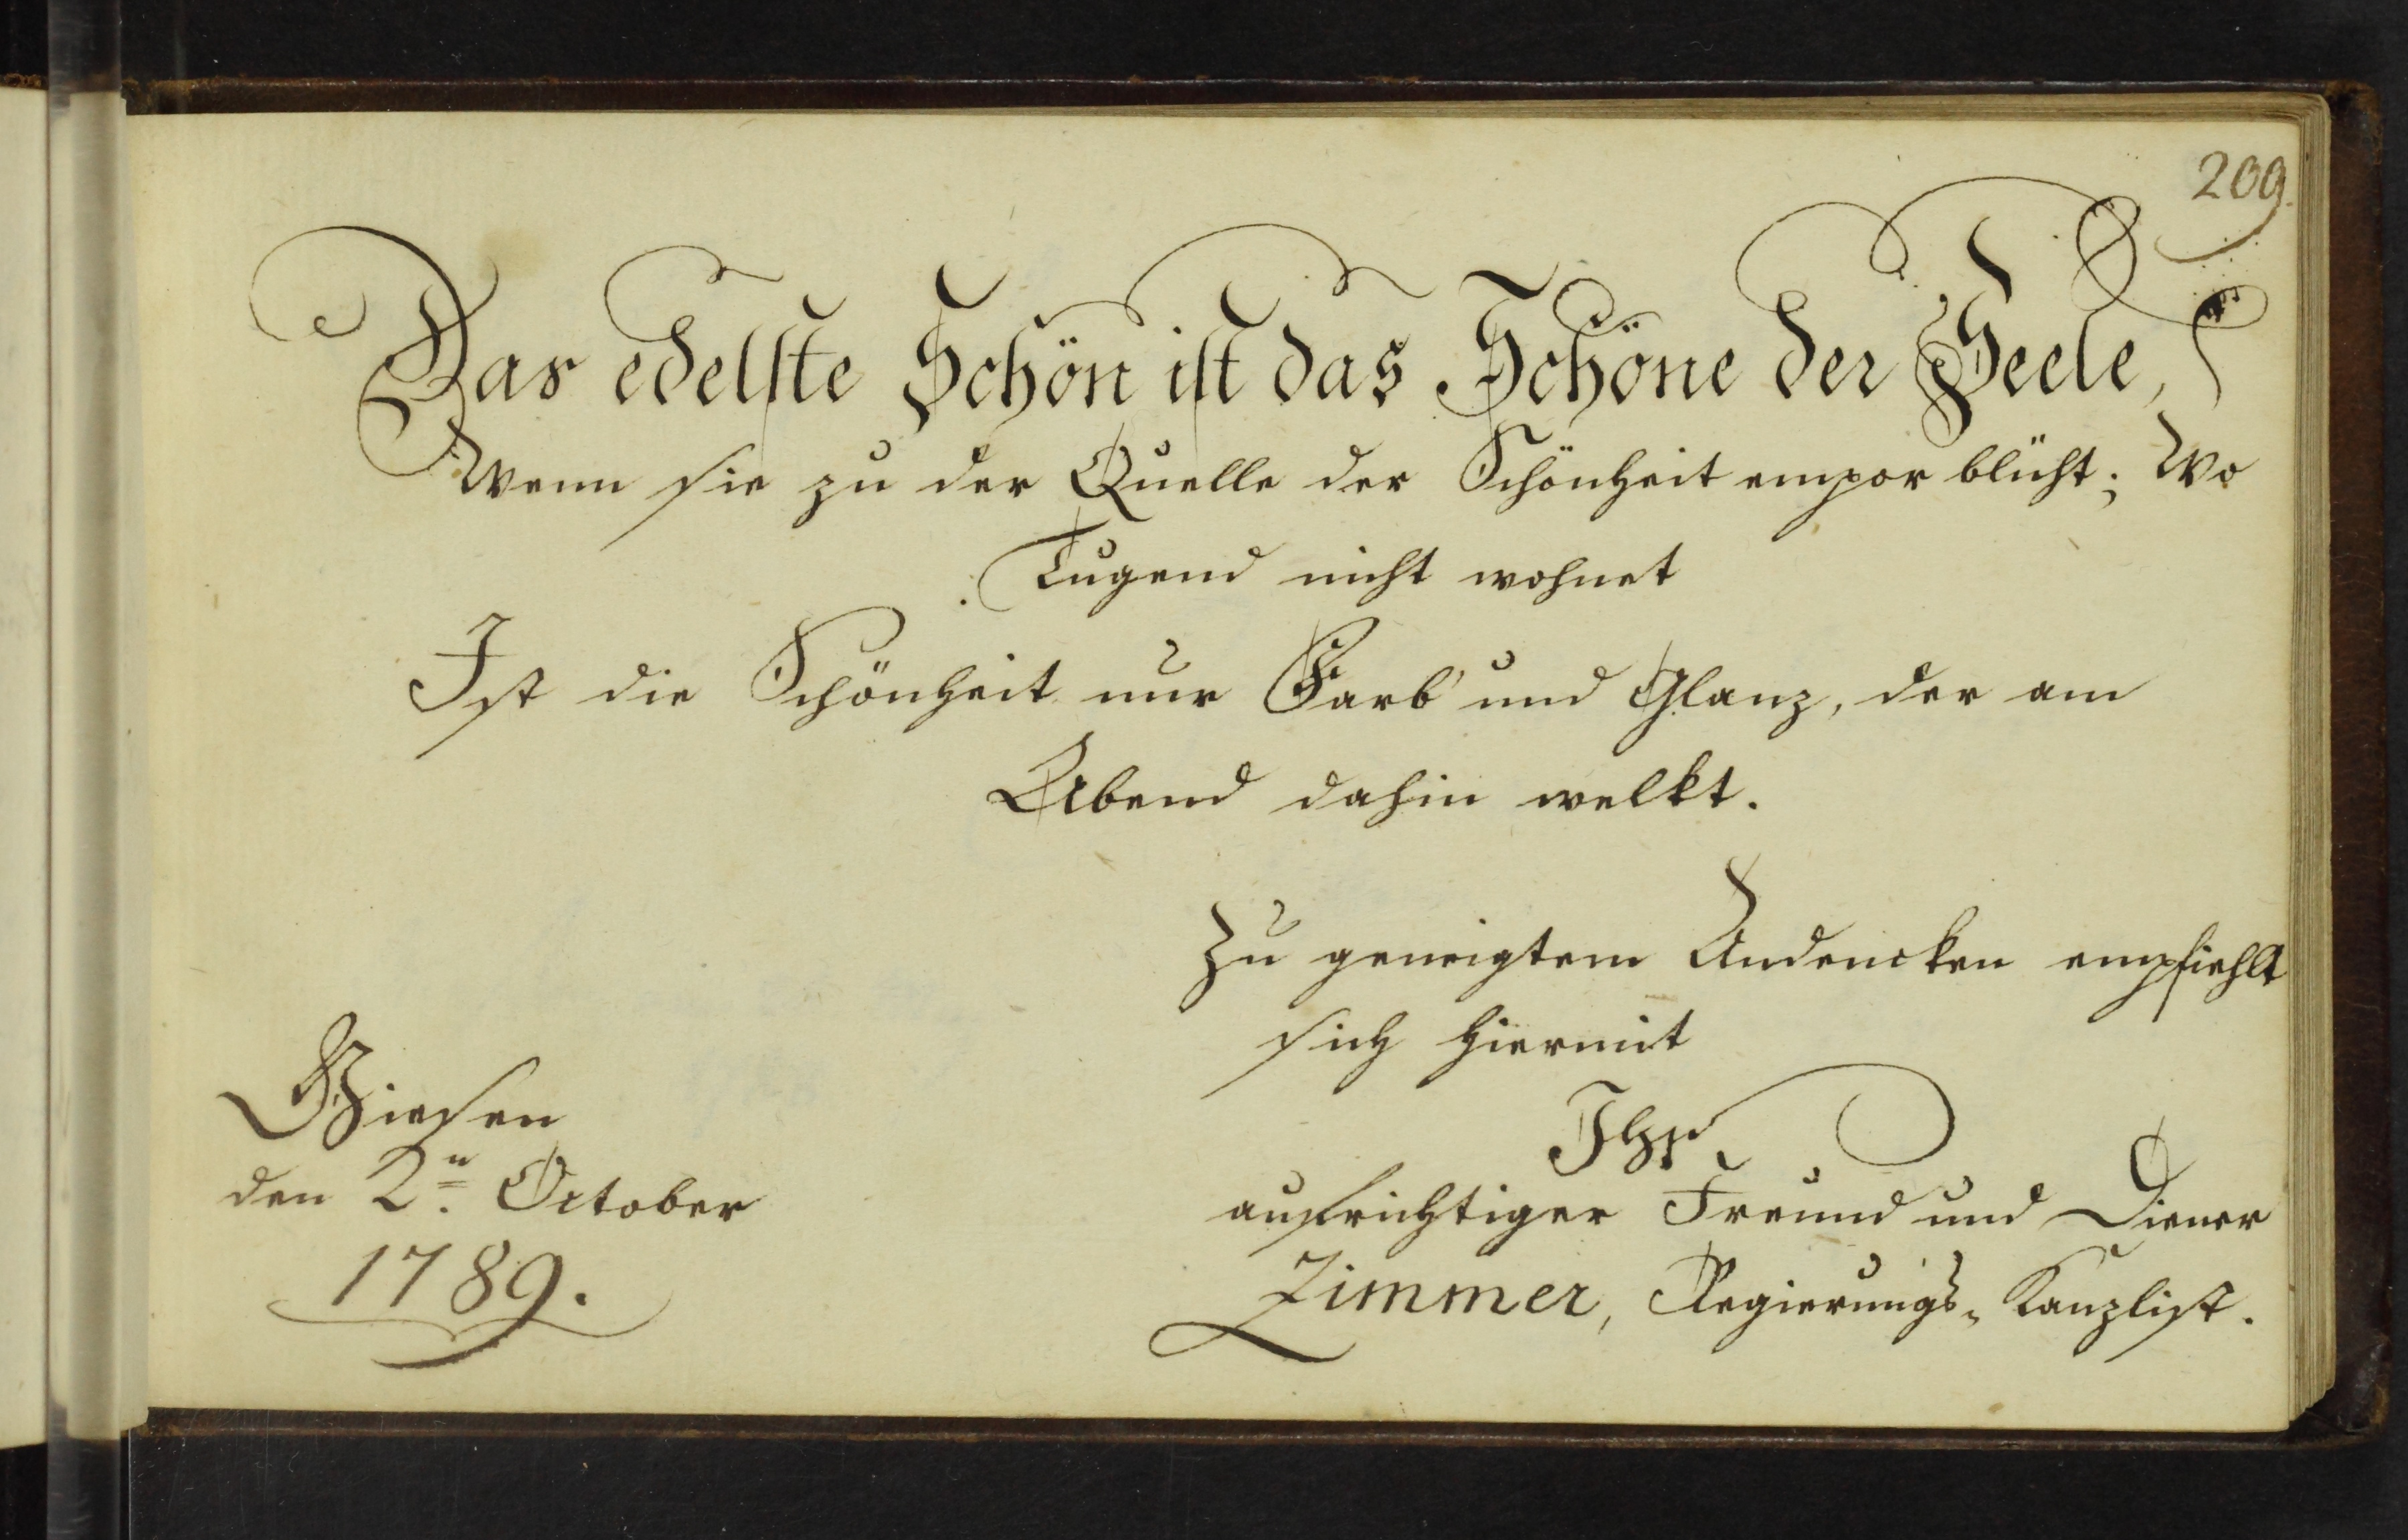 209.
Das edelste Schön ist das Schöne der Seele,
Wenn sie zu der Quelle der Schönheit empor blüht; Wo
Tugend nicht wohnet
Ist die Schönheit nur Farb' und Glanz, der am
Abend dahin welkt.
Zu geneigtem Andencken empfiehlt
sich hiermit
Ihr
aufrichtiger Freund und Diener
Zimmer, Regierungs-Kanzlist.
Giesen
den 2n. October
1789.